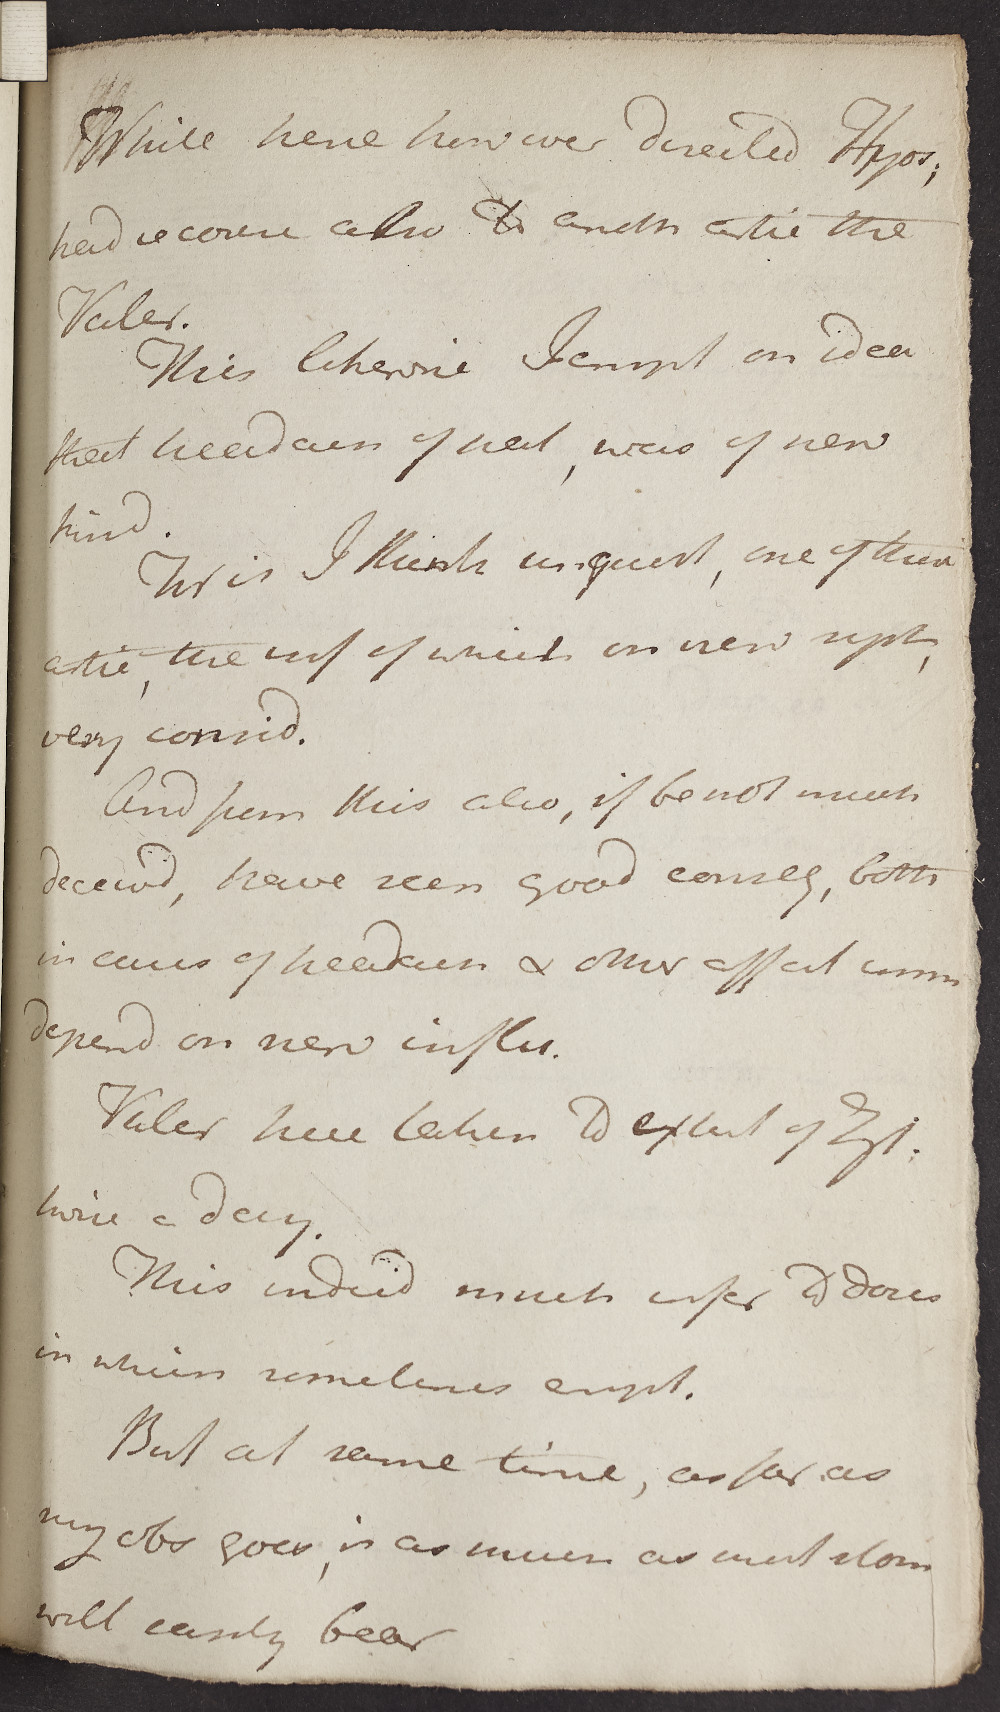 While here however directed Hyos;
had recourse also to anoth artic the
Valer.
This likewise I empt on idea
that headacn of pat, was of nerv
kind.
This I think unquest, one of those
artic, the inf of which on nerv syst,
very consid.
And from this also, if be not much
deceivd, have seen good conseq, both
in cases of headacn & other affect
depend on nerv influ.
Valer here taken to extent of
twice a day.
This indeed much super to doses
in which sometimes empt.
But at same time, as far as
my obs goes, is as much as most stom
will easily bear